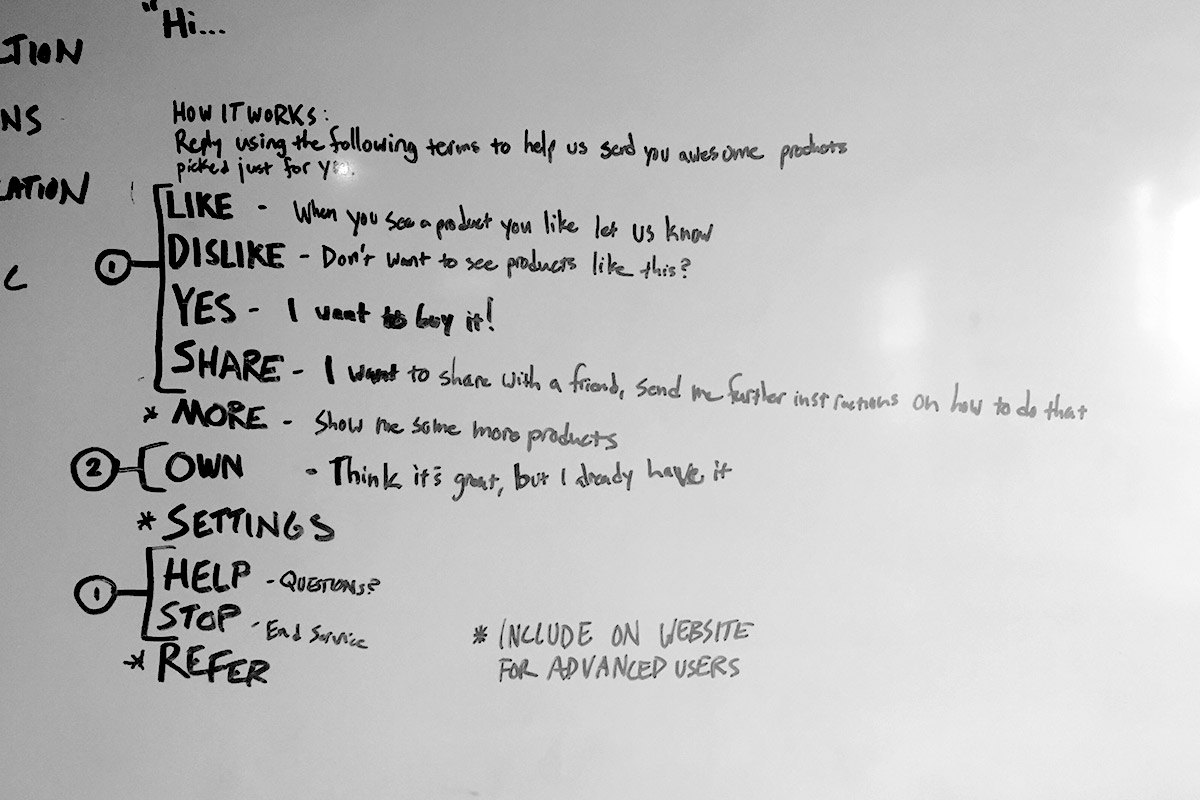 "Hi...
CTION
NS
LATION
C
HOW IT WORKS:
Reply using the following terms to help us send you awesome products
picked just for you.
LIKE - When you see a product you like let us know
1 DISLIKE - Don't want to see products like this?
YES - I want to buy it!
SHARE - I want to share with a friend, send me further instructions on how to do that
* MORE - Show me some more products
2 OWN - Think it's great, but I already have it
* SETTINGS
1 HELP - QUESTIONS?
STOP - End Service
* REFER
* INCLUDE ON WEBSITE
FOR ADVANCED USERS